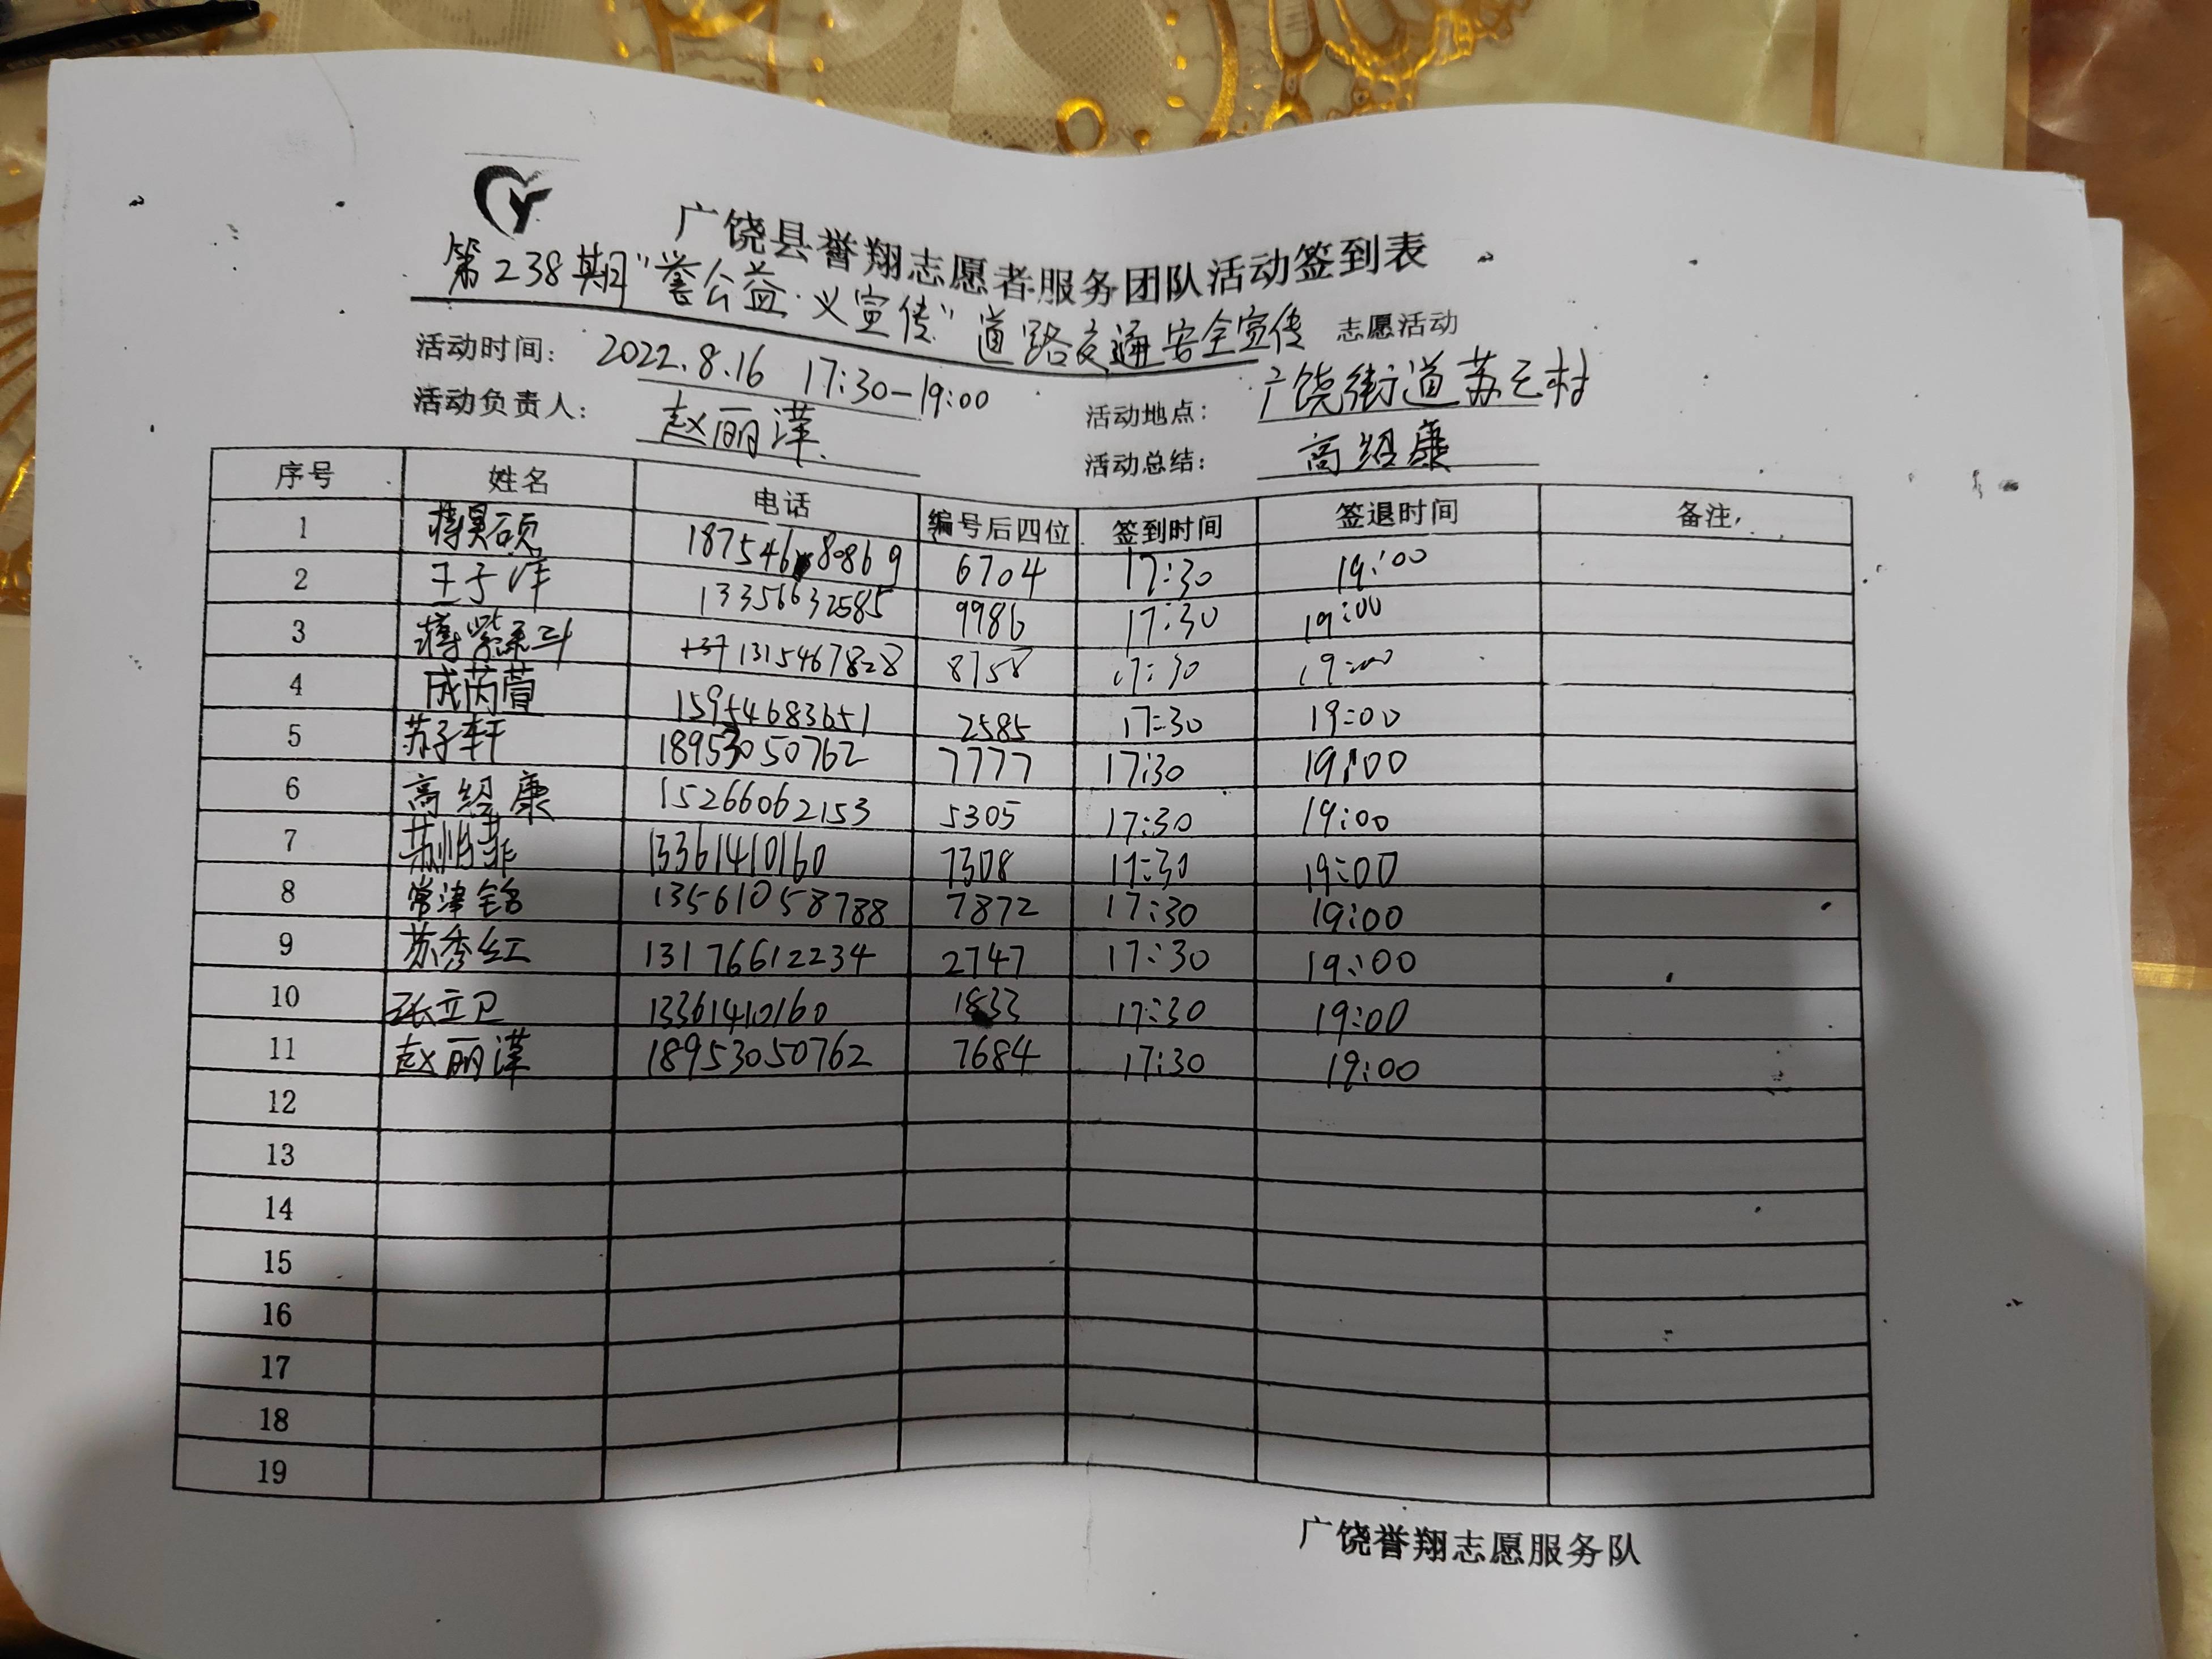 广饶县誉翔志愿者服务团队活动签到表
第238期"誉公益·义宣传"道路交通安全宣传 志愿活动
活动时间: 2022.8.16 17:30-19:00 活动地点: 广饶街道苏三村
活动负责人: 赵丽萍 活动总结: 高绍康
序号 姓名 电话 编号后四位 签到时间 签退时间 备注
1 蒋昊硕 6704 17:30 19:00
2 王子洋 13356632585 9986 17:30 19:00
3 13154678 8758 17:30 19:00
4 成芮萱 15954683651 2585 17:30 19:00
5 苏子轩 18953050762 7777 17:30 19:00
6 高绍康 15266062153 5305 17:30 19:00
7 13361410160 7308 17:30 19:00
8 常津铭 13561058788 7872 17:30 19:00
9 苏秀红 13176612234 2747 17:30 19:00
10 张立卫 13361410160 1833 17:30 19:00
11 赵丽萍 18953050762 7684 17:30 19:00
12
13
14
15
16
17
18
19
广饶誉翔志愿服务队